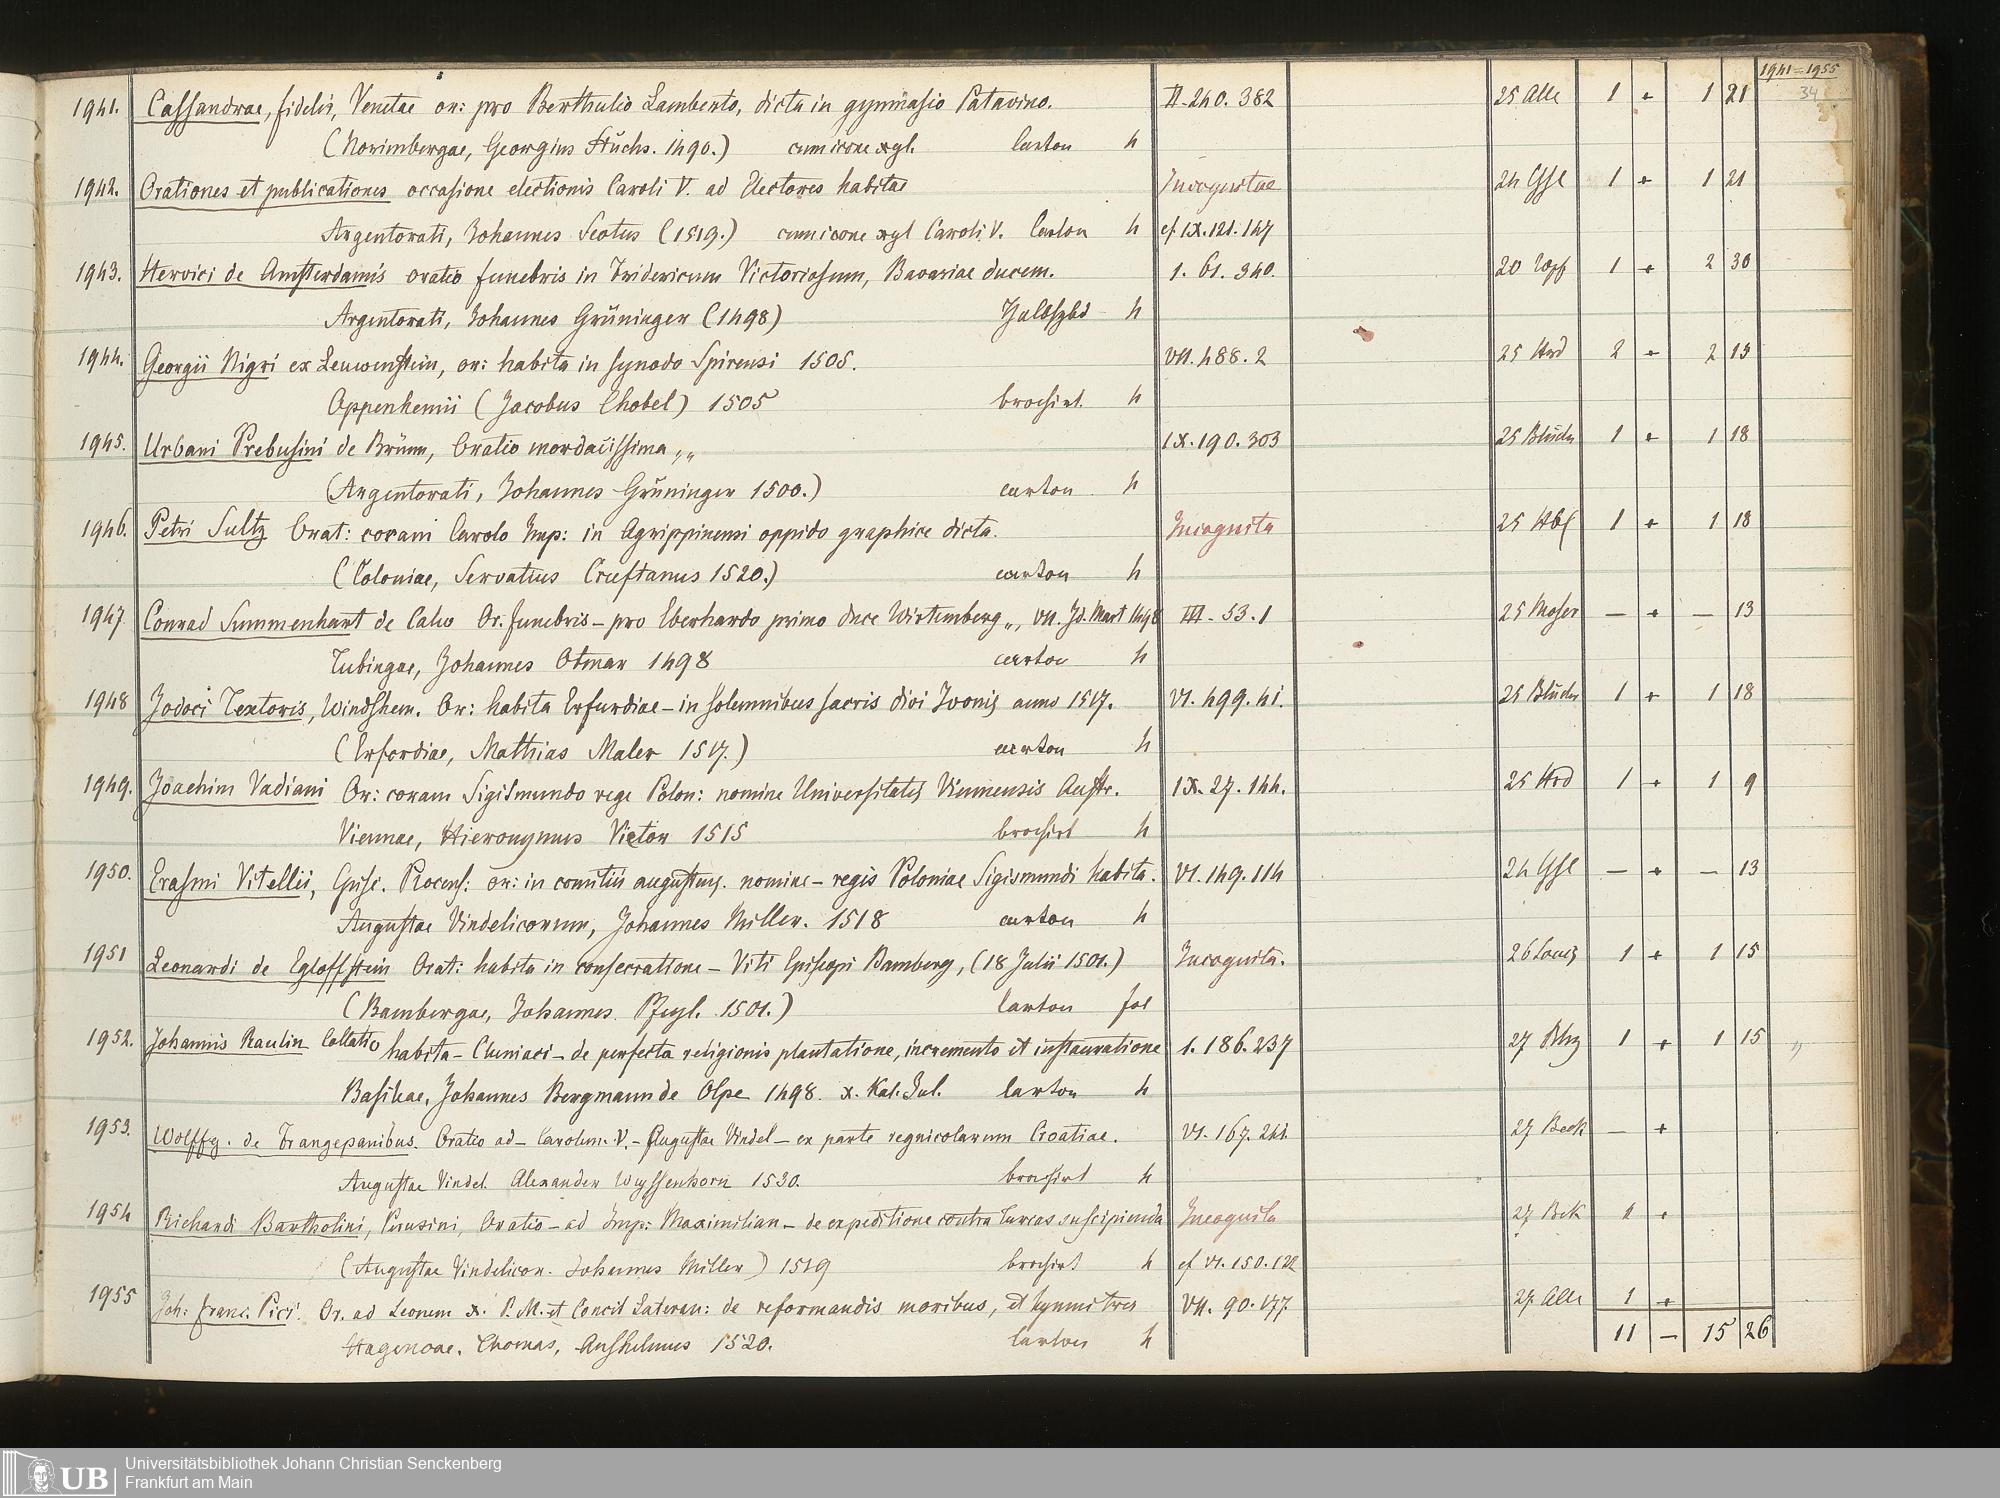 1941=1955
34
1941. Cassandrae, fidelis, Venetae or: pro Berthulio Lamberto, dicta in gymnasio Patavino. II. 240. 382 25 Alle 1 + 1 21
(Norimbergae, Georgius Stuchs. 1490.) cum icone xyl. Carton 4
1942. Orationes et publicationes occasione electionis Caroli V. ad Electores habitae Incognitae 24 Gsl 1 + 1 21
Argentorati, Johannes Scotus (1519.) cum icone xyl Caroli V. Carton 4 cf IX. 121. 147
1943. Hervici de Amsterdamis oratio funebris in Fridericum Victoriosum, Bavariae ducem. 1. 61. 340. 20 1 + 2 30
Argentorati, Johannes Grüninger (1498) Halbfzbd 4
1944. Georgii Nigri ex Leuwenstein, or: habita in synodo Spirensi 1505. VII. 488. 2 25 Hrd 2 + 2 13
Oppenhemii (Jacobus Chobel) 1505 brochirt. 4
1945. Urbani Prebusini de Brünn, Oratio mordacissima „ IX. 190. 303 25 1 + 1 18
(Argentorati, Johannes Grüninger 1500.) carton 4
1946. Petri Sultz Orat: coram Carolo Imp: in Agrippinensi oppido graphice dicta. Incognita 25 1 + 1 18
(Coloniae, Servatius Cruftanus 1520.) carton 4
1947 Conrad Summenhart de Calw Or. funebris – pro Eberhardo primo duce Wirtemberg „, VII. Id. Mart 1498 III. 53. 1 25 Moser — + — 13
Tubingae, Johannes Otmar 1498 carton 4
1948 Jodoci Textoris, Windshem. Or: habita Erfurdiae – in solemnibus sacris divi Ivonis anno 1517. VI. 499. 41. 25 1 + 1 18
(Erfordiae, Mathias Maler 1517.) carton 4
1949. Joachim Vadiani Or: coram Sigismundo rege Polon: nomine Universitatis Viennensis Austr. IX. 27. 144. 25 Hrd 1 + 1 9
Viennae, Hieronymus Vietor 1515 brochirt 4
1950. Erasmi Vitellii, Episc. Plocens: or: in comitiis augustens. nomine – regis Poloniae Sigismundi habita. VI. 149. 114 24 Gsl — + — 13
Augustae Vindelicorum, Johannes Miller. 1518 carton 4
1951 Leonardi de Egloffstein Orat: habita in consecratione – Viti Episcopi Bamberg, (18 Julii 1501.) Incognita. 26 1 + 1 15
(Bambergae, Johannes Pfeyl. 1501.) Carton fol
1952. Johannis Raulin Collatio habita – Cluniaci – de perfecta religionis plantatione, incremento et instauratione 1. 186. 237 27 1 + 1 15 „
Basileae, Johannes Bergmann de Olpe 1498. X. Kal. Jul. Carton 4
1953. Wolffg. de Frangepanibus. Oratio ad – Carolum. V. – Augustae Vindel – ex parte regnicolarum Croatiae. VI. 167. 241 27 Beck — +
Augustae Vindel. Alexander Weyssenhorn 1530. brochirt 4
1954 Richardi Bartholini, Perusini, Oratio – ad Imp: Maximilian – de expeditione contra turcas suscipienda Incognita 27 Bek 1 +
(Augustae Vindelicor. Johannes Miller) 1519 brochirt 4 cf VI. 150. 122
1955 Joh: franc. Pici: Or. ad Leonem X. P. M. et Concil Lateran: de reformandis moribus, et hymni tres VII. 90. 177. 27. Alle 1 +
Hagenoae, Thomas, Anshelmus 1520. Carton 4 11 — 15 26
UB Universitätsbibliothek Johann Christian Senckenberg
Frankfurt am Main